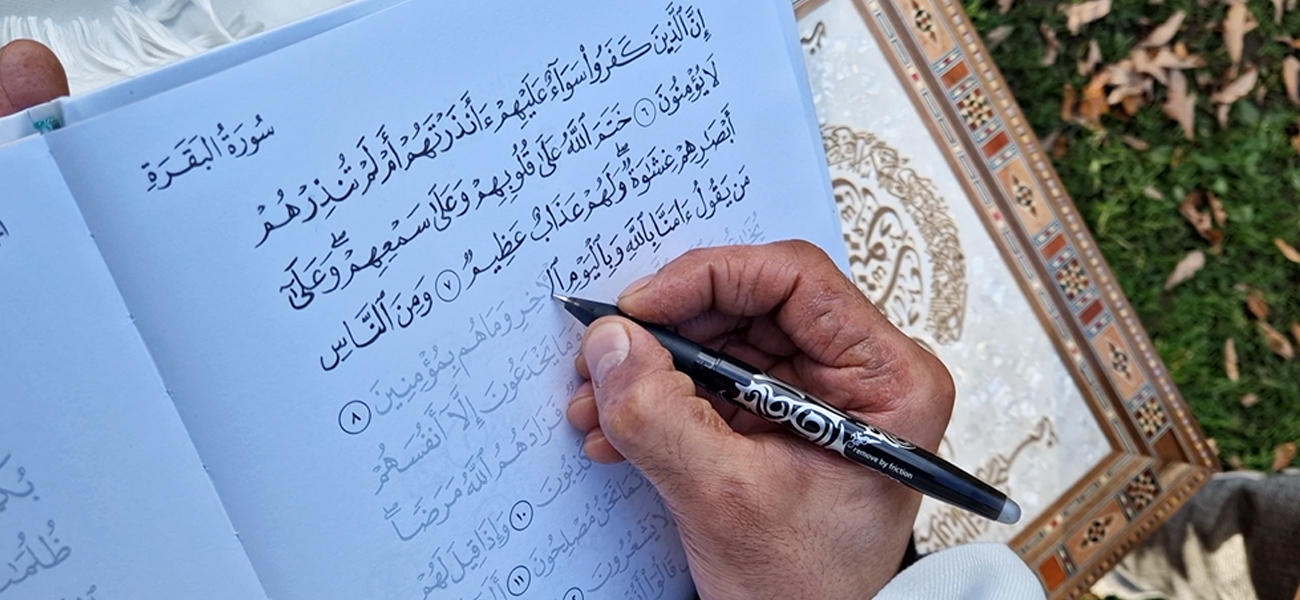 سُورَةُ البَقَرَةِ
إِنَّ ٱلَّذِينَ كَفَرُوا۟ سَوَآءٌ عَلَيْهِمْ ءَأَنذَرْتَهُمْ أَمْ لَمْ تُنذِرْهُمْ
لَا يُؤْمِنُونَ ٦ خَتَمَ ٱللَّهُ عَلَىٰ قُلُوبِهِمْ وَعَلَىٰ سَمْعِهِمْ ۖ وَعَلَىٰٓ
أَبْصَٰرِهِمْ غِشَٰوَةٌ ۖ وَلَهُمْ عَذَابٌ عَظِيمٌ ٧ وَمِنَ ٱلنَّاسِ
مَن يَقُولُ ءَامَنَّا بِٱللَّهِ وَبِٱلْيَوْمِ ٱلْءَاخِرِ وَمَا هُم بِمُؤْمِنِينَ ٨
وَمَا يَخْدَعُونَ إِلَّآ أَنفُسَهُمْ
فَزَادَهُمُ ٱللَّهُ مَرَضًا ۖ
١٠ وَإِذَا قِيلَ لَهُمْ
نَحْنُ مُصْلِحُونَ ١١
لَّا يَشْعُرُونَ
remove by friction